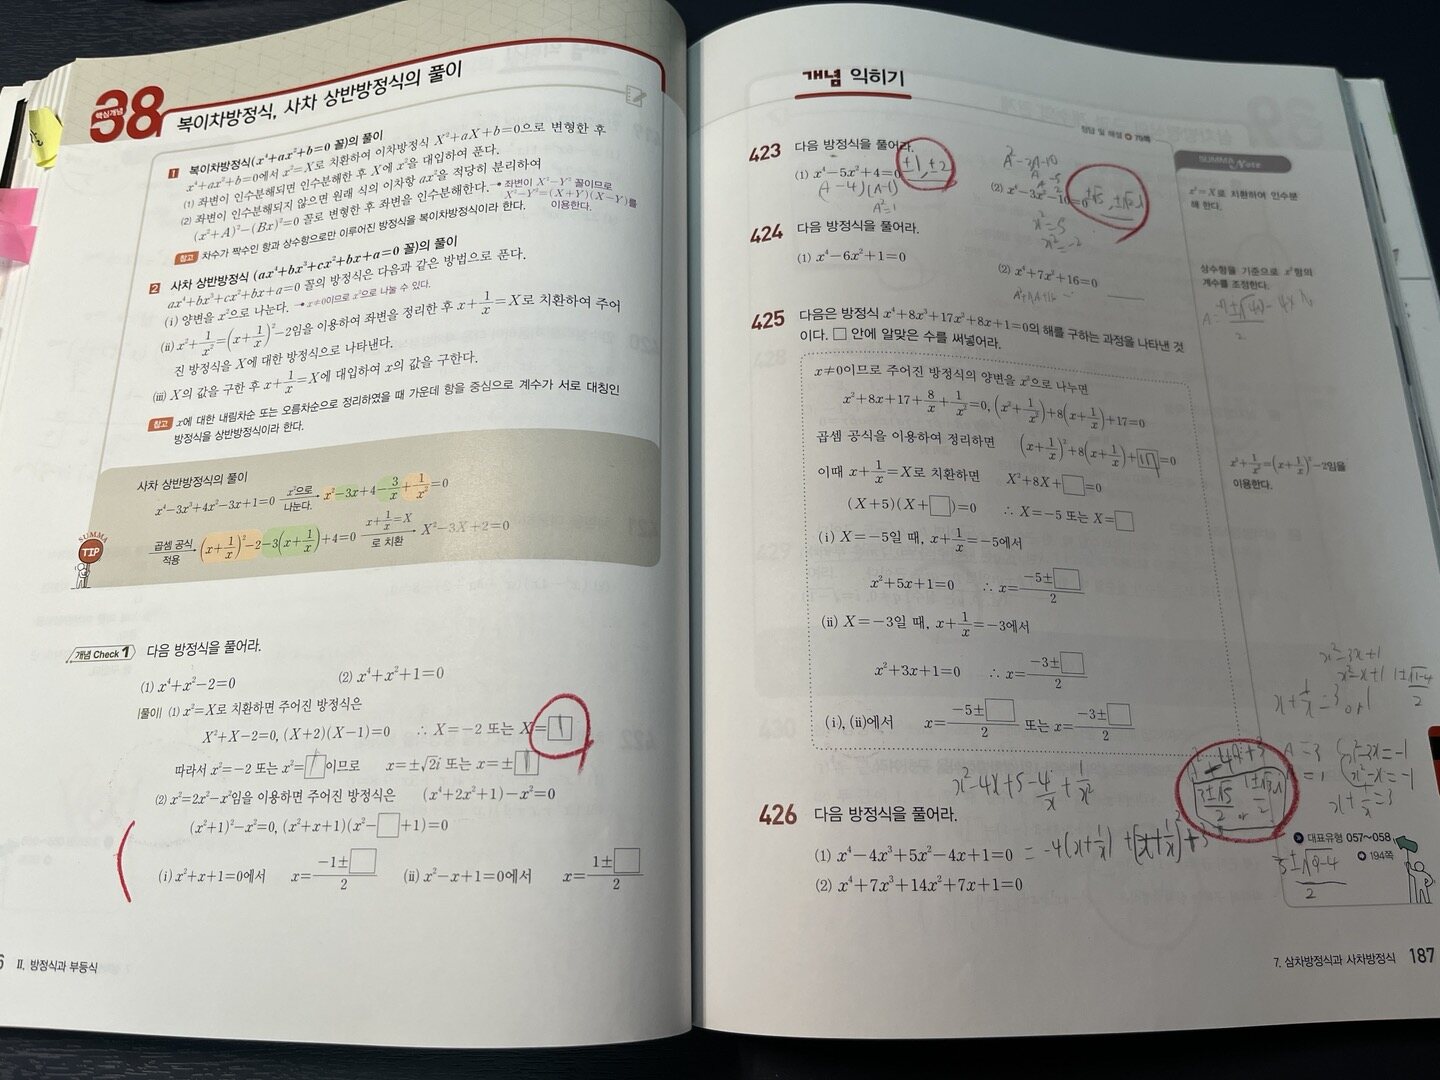 핵심개념
38
복이차방정식, 사차 상반방정식의 풀이
1 복이차방정식(x⁴+ax²+b=0 꼴)의 풀이
x⁴+ax²+b=0에서 x²=X로 치환하여 이차방정식 X²+aX+b=0으로 변형한 후
(1) 좌변이 인수분해되면 인수분해한 후 X에 x²을 대입하여 푼다.
(2) 좌변이 인수분해되지 않으면 원래 식의 이차항 ax²을 적당히 분리하여
(x²+A)²-(Bx)²=0 꼴로 변형한 후 좌변을 인수분해한다.
좌변이 X²-Y² 꼴이므로
X²-Y²=(X+Y)(X-Y)를
이용한다.
참고 차수가 짝수인 항과 상수항으로만 이루어진 방정식을 복이차방정식이라 한다.
2 사차 상반방정식 (ax⁴+bx³+cx²+bx+a=0 꼴)의 풀이
ax⁴+bx³+cx²+bx+a=0 꼴의 방정식은 다음과 같은 방법으로 푼다.
(i) 양변을 x²으로 나눈다. → x≠0이므로 x²으로 나눌 수 있다.
(ii) x²+1/x²=(x+1/x)²-2임을 이용하여 좌변을 정리한 후 x+1/x=X로 치환하여 주어
진 방정식을 X에 대한 방정식으로 나타낸다.
(iii) X의 값을 구한 후 x+1/x=X에 대입하여 x의 값을 구한다.
참고 x에 대한 내림차순 또는 오름차순으로 정리하였을 때 가운데 항을 중심으로 계수가 서로 대칭인
방정식을 상반방정식이라 한다.
사차 상반방정식의 풀이
x⁴-3x³+4x²-3x+1=0 x²으로 나눈다. → x²-3x+4-3/x+1/x²=0
곱셈 공식 적용 → (x+1/x)²-2-3(x+1/x)+4=0 x+1/x=X로 치환 → X²-3X+2=0
SUMMA
TIP
개념 Check 1 다음 방정식을 풀어라.
(1) x⁴+x²-2=0 (2) x⁴+x²+1=0
|풀이| (1) x²=X로 치환하면 주어진 방정식은
X²+X-2=0, (X+2)(X-1)=0 ∴ X=-2 또는 X=1
따라서 x²=-2 또는 x²=1이므로 x=±√2i 또는 x=±1
(2) x²=2x²-x²임을 이용하면 주어진 방정식은 (x⁴+2x²+1)-x²=0
(x²+1)²-x²=0, (x²+x+1)(x²-□+1)=0
(i) x²+x+1=0에서 x=(-1±□)/2 (ii) x²-x+1=0에서 x=(1±□)/2
6 II. 방정식과 부등식
개념 익히기
정답 및 해설 79쪽
423 다음 방정식을 풀어라.
(1) x⁴-5x²+4=0 ±1, ±2
(A-4)(A-1)
A²=1
A²-3A-10
A -5
A 2
(2) x⁴-3x²-10=0 ±√5, ±√2i
x²=5
x²=-2
424 다음 방정식을 풀어라.
(1) x⁴-6x²+1=0 (2) x⁴+7x²+16=0
425 다음은 방정식 x⁴+8x³+17x²+8x+1=0의 해를 구하는 과정을 나타낸 것
이다. □ 안에 알맞은 수를 써넣어라.
x≠0이므로 주어진 방정식의 양변을 x²으로 나누면
x²+8x+17+8/x+1/x²=0, (x²+1/x²)+8(x+1/x)+17=0
곱셈 공식을 이용하여 정리하면 (x+1/x)²+8(x+1/x)+15=0
이때 x+1/x=X로 치환하면 X²+8X+□=0
(X+5)(X+□)=0 ∴ X=-5 또는 X=□
(i) X=-5일 때, x+1/x=-5에서
x²+5x+1=0 ∴ x=(-5±□)/2
(ii) X=-3일 때, x+1/x=-3에서
x²+3x+1=0 ∴ x=(-3±□)/2
(i), (ii)에서 x=(-5±□)/2 또는 x=(-3±□)/2
x²-4x+5-4/x+1/x²
426 다음 방정식을 풀어라.
(1) x⁴-4x³+5x²-4x+1=0 = -4(x+1/x)+(x+1/x)²+3
(2) x⁴+7x³+14x²+7x+1=0
SUMMA Note
x²=X로 치환하여 인수분
해 한다.
상수항을 기준으로 x²항의
계수를 조정한다.
x²+1/x²=(x+1/x)²-2임을
이용한다.
x²-3x+1
x²-x+1
(1±√1-4)/2
x+1/x=3 or 1
A=3
x²-3x=-1
x²-x=-1
x+1/x=3
(3±√5)/2 or (1±√3i)/2
대표유형 057~058
194쪽
(3±√9-4)/2
7. 삼차방정식과 사차방정식 187